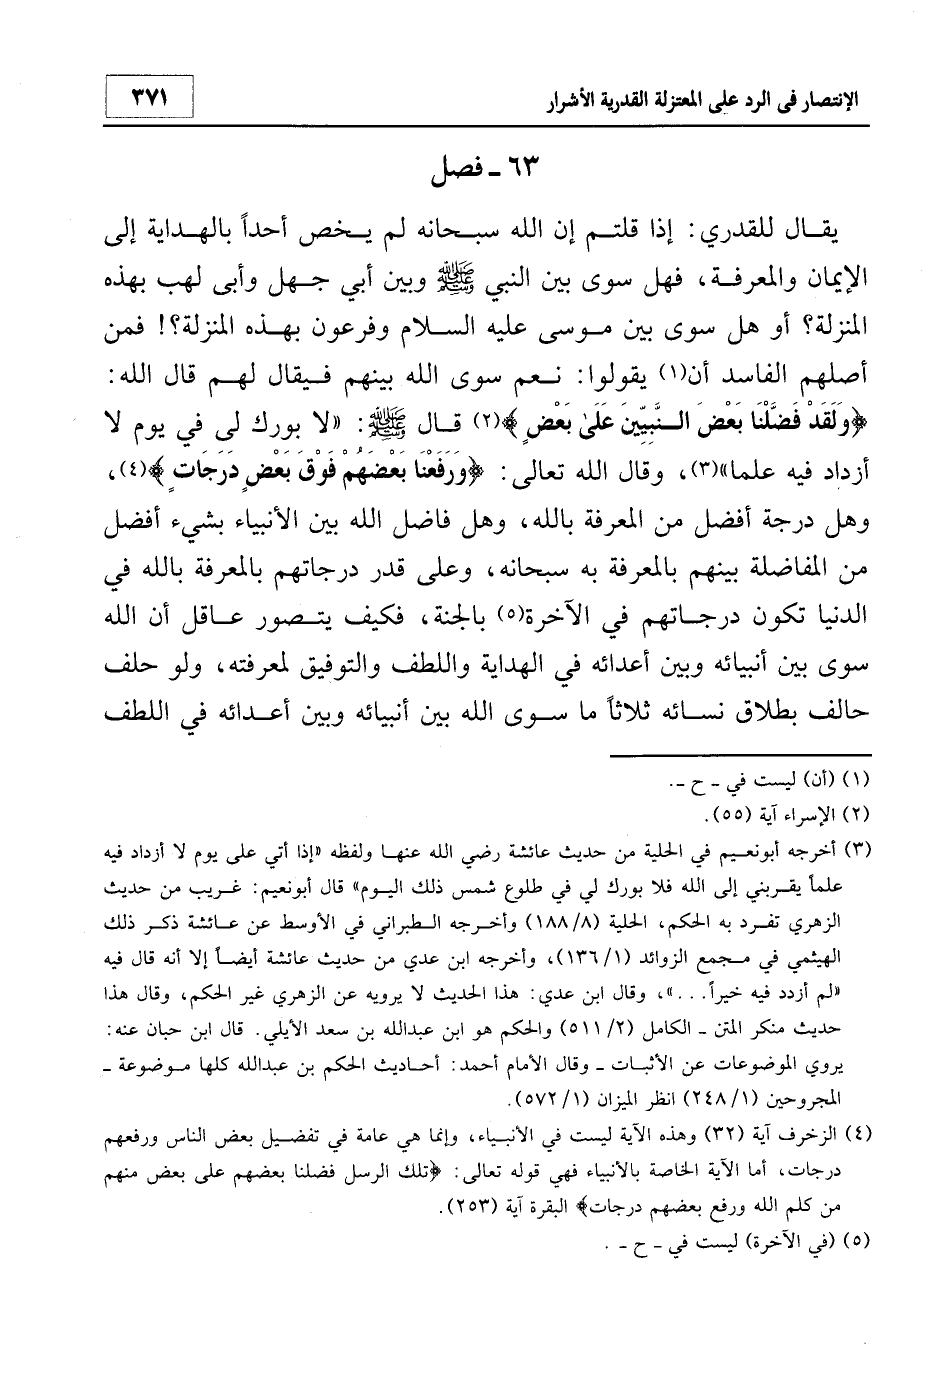 الإنتصار في الرد على المعتزلة القدرية الأشرار
٣٧١
٦٣ ـ فصل
يقال للقدري: إذا قلتم إن الله سبحانه لم يخص أحداً بالهداية إلى
الإيمان والمعرفة، فهل سوى بين النبي ﷺ وبين أبي جهل وأبى لهب بهذه
المنزلة؟ أو هل سوى بين موسى عليه السلام وفرعون بهذه المنزلة؟! فمن
أصلهم الفاسد أن(١) يقولوا: نعم سوى الله بينهم فيقال لهم قال الله:
﴿وَلَقَدْ فَضَّلْنَا بَعْضَ النَّبِيِّينَ عَلَىٰ بَعْضٍ﴾(٢) قال ﷺ: «لا بورك لى في يوم لا
أزداد فيه علما»(٣)، وقال الله تعالى: ﴿وَرَفَعْنَا بَعْضَهُمْ فَوْقَ بَعْضٍ دَرَجَاتٍ﴾(٤)،
وهل درجة أفضل من المعرفة بالله، وهل فاضل الله بين الأنبياء بشيء أفضل
من المفاضلة بينهم بالمعرفة به سبحانه، وعلى قدر درجاتهم بالمعرفة بالله في
الدنيا تكون درجاتهم في الآخرة(٥) بالجنة، فكيف يتصور عاقل أن الله
سوى بين أنبيائه وبين أعدائه في الهداية واللطف والتوفيق لمعرفته، ولو حلف
حالف بطلاق نسائه ثلاثاً ما سوى الله بين أنبيائه وبين أعدائه في اللطف
(١) (أن) ليست في ـ ح ـ.
(٢) الإسراء آية (٥٥).
(٣) أخرجه أبونعيم في الحلية من حديث عائشة رضي الله عنها ولفظه «إذا أتي على يوم لا أزداد فيه
علماً يقربني إلى الله فلا بورك لي في طلوع شمس ذلك اليوم» قال أبونعيم: غريب من حديث
الزهري تفرد به الحكم، الحلية (٨/ ١٨٨) وأخرجه الطبراني في الأوسط عن عائشة ذكر ذلك
الهيثمي في مجمع الزوائد (١/ ١٣٦)، وأخرجه ابن عدي من حديث عائشة أيضاً إلا أنه قال فيه
«لم أزدد فيه خيراً...»، وقال ابن عدي: هذا الحديث لا يرويه عن الزهري غير الحكم، وقال هذا
حديث منكر المتن ـ الكامل (٢/ ٥١١) والحكم هو ابن عبدالله بن سعد الأيلي. قال ابن حبان عنه:
يروي الموضوعات عن الأثبات ـ وقال الأمام أحمد: أحاديث الحكم بن عبدالله كلها موضوعة ـ
المجروحين (١/ ٢٤٨) انظر الميزان (١/ ٥٧٢).
(٤) الزخرف آية (٣٢) وهذه الآية ليست في الأنبياء، وإنما هي عامة في تفضيل بعض الناس ورفعهم
درجات، أما الآية الخاصة بالأنبياء فهي قوله تعالى: ﴿تلك الرسل فضلنا بعضهم على بعض منهم
من كلم الله ورفع بعضهم درجات﴾ البقرة آية (٢٥٣).
(٥) (في الآخرة) ليست في ـ ح ـ.